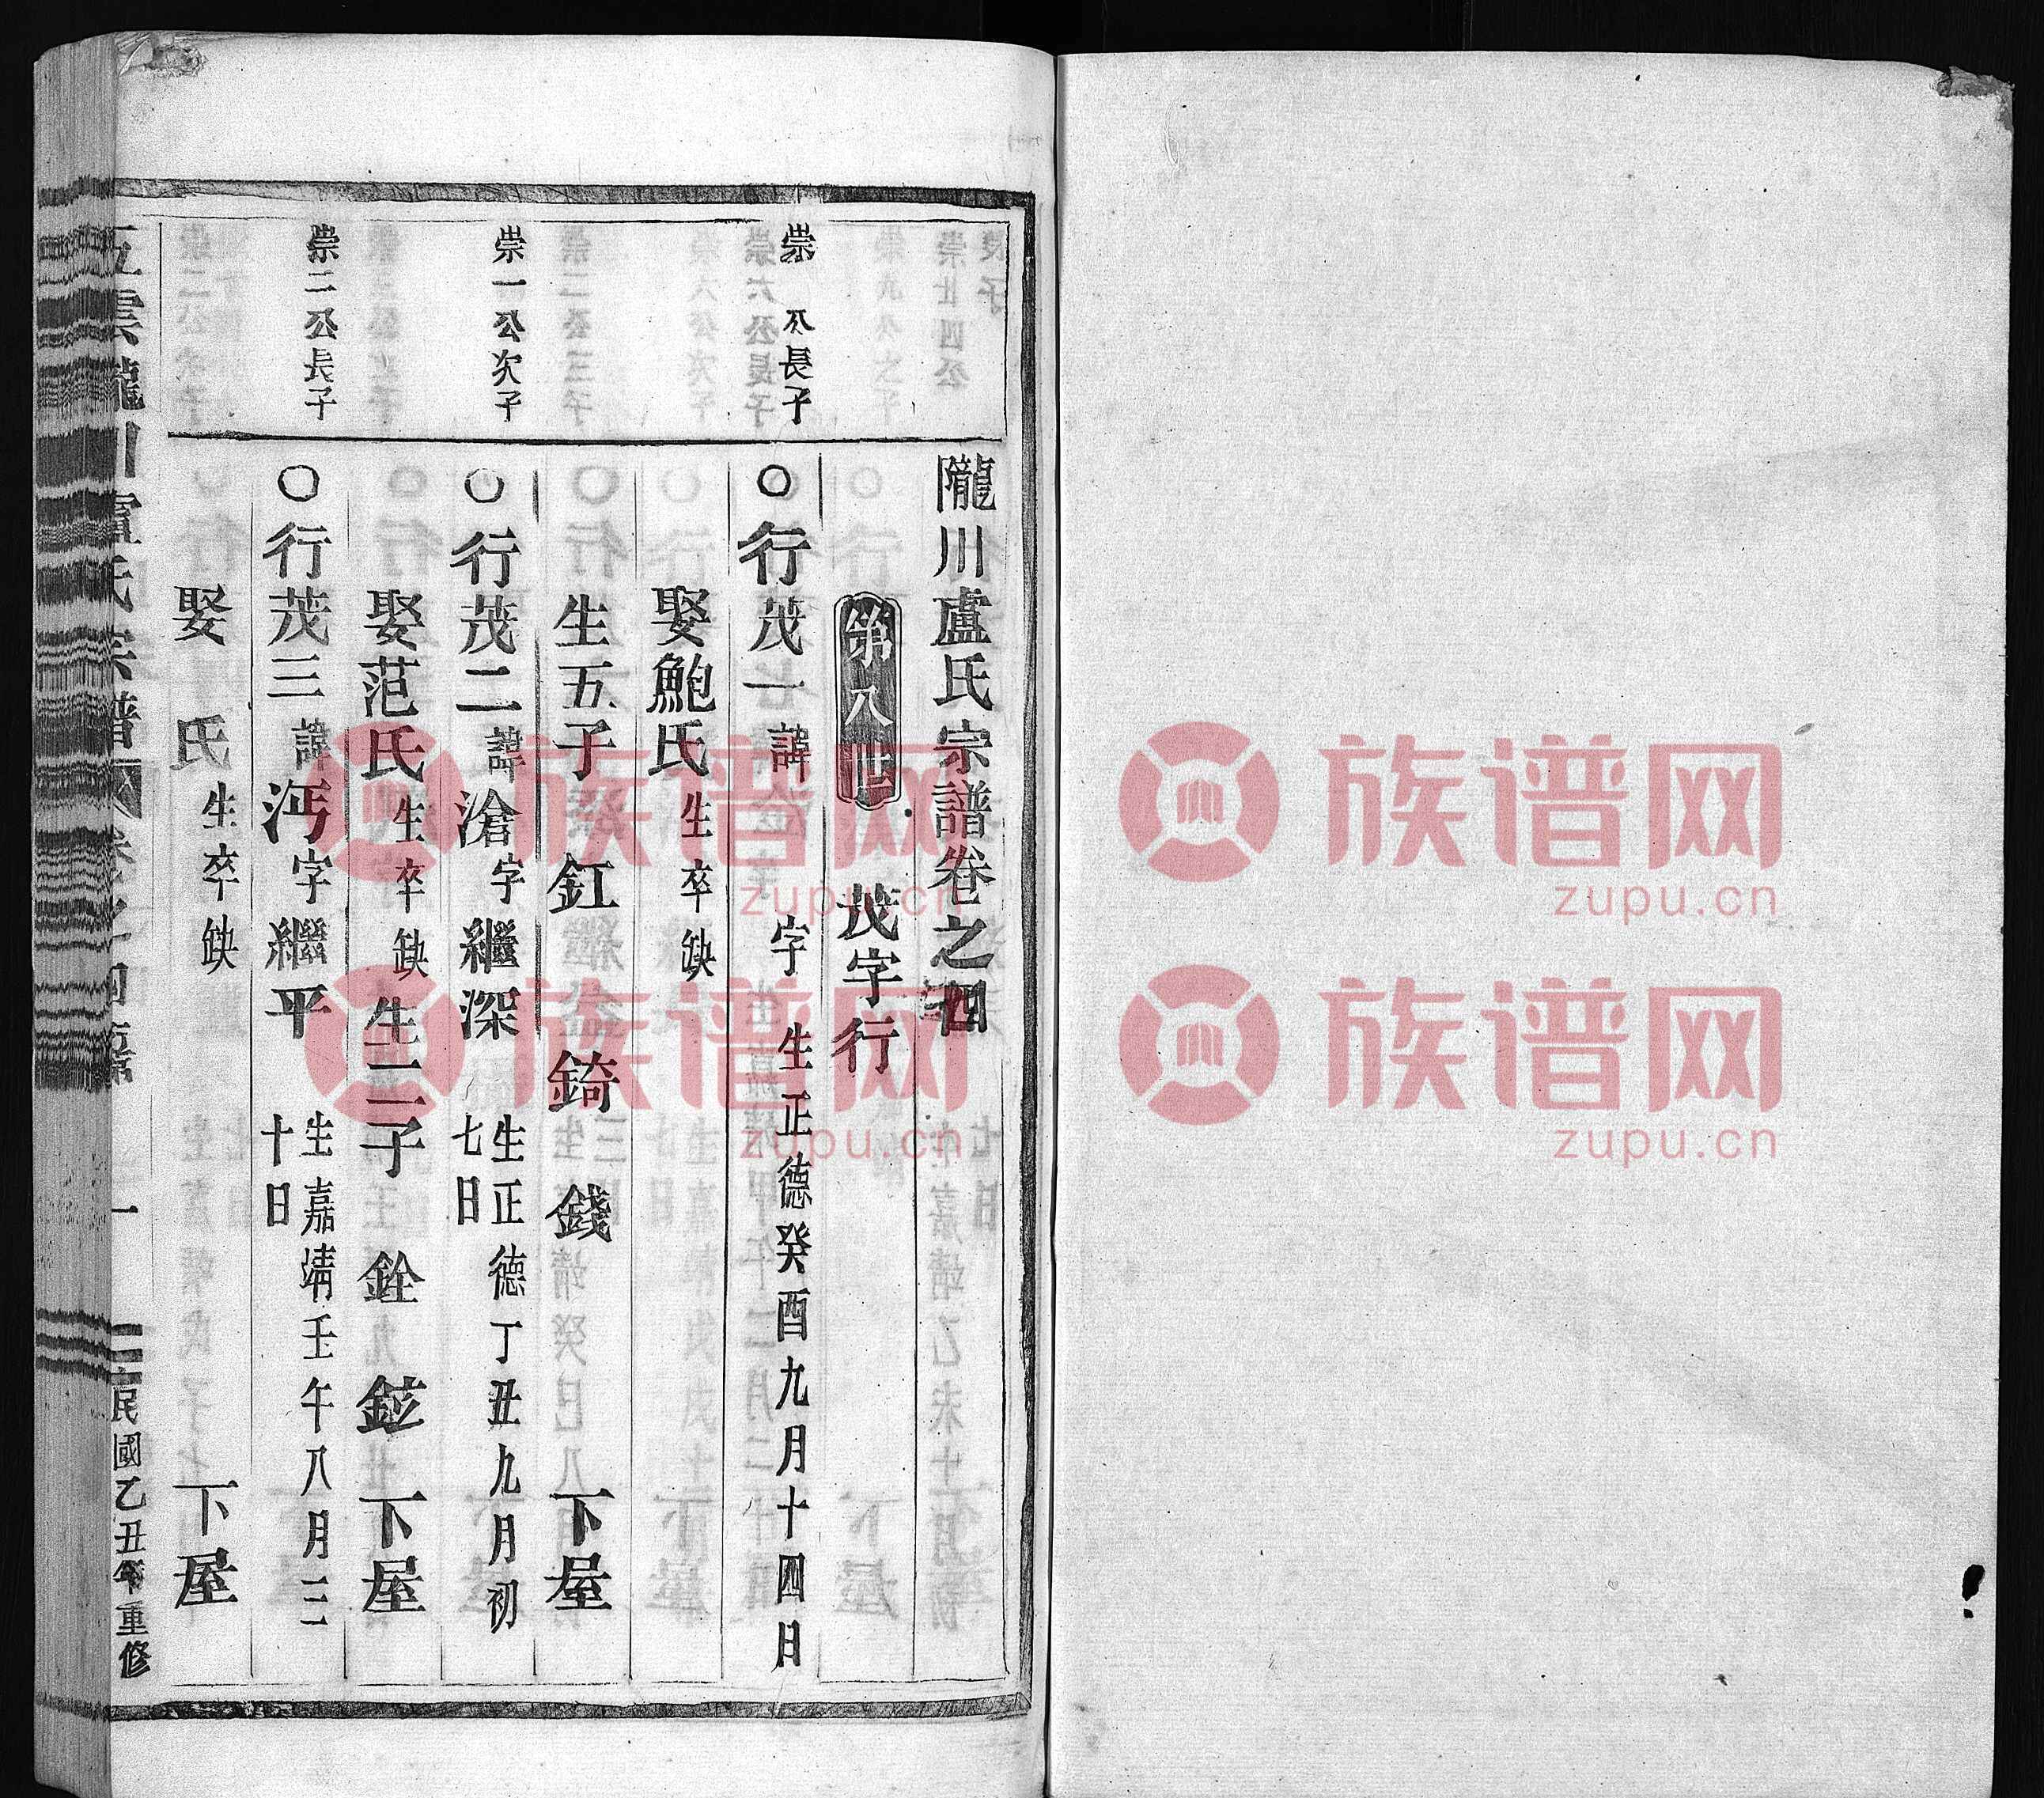 隴川盧氏宗譜卷之四
第八世　茂字行
崇　公長子
○行茂一諱　字　生正德癸酉九月十四日
娶鮑氏生卒缺
生五子　釭　錡　錢　下屋
崇一公次子
○行茂二諱滄字繼深　生正德丁丑九月初七日
娶范氏生卒缺　生二子　銓　鉉　下屋
崇二公長子
○行茂三諱沔字繼平　生嘉靖壬午八月三十日
娶　氏生卒缺　下屋
五雲隴川盧氏宗譜　卷之四　一　民國乙丑年重修
族谱网
zupu.cn
族谱网
zupu.cn
族谱网
zupu.cn
族谱网
zupu.cn